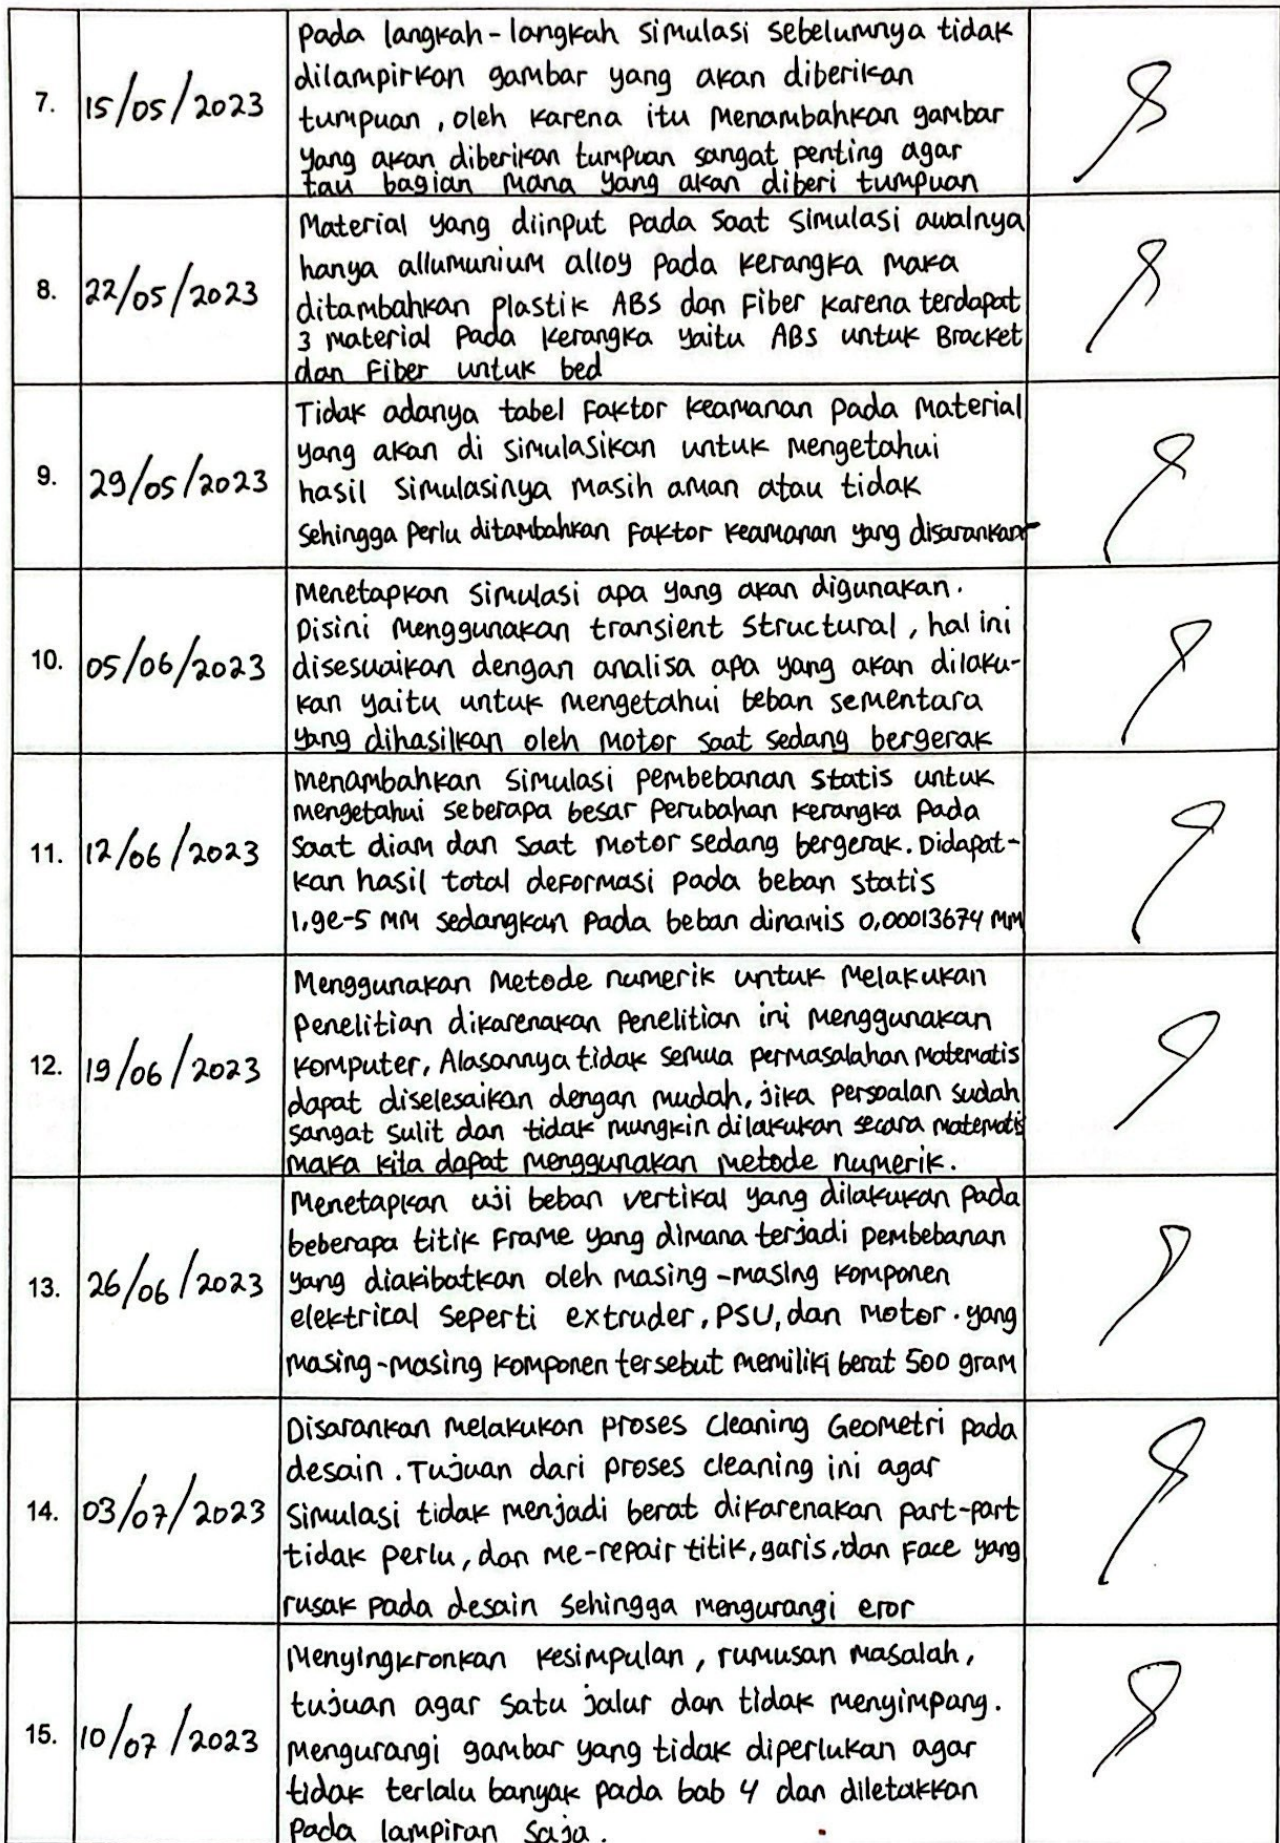 7.
15/05/2023
Pada langkah-langkah simulasi sebelumnya tidak
dilampirkan gambar yang akan diberikan
tumpuan, oleh karena itu menambahkan gambar
yang akan diberikan tumpuan sangat penting agar
tau bagian mana yang akan diberi tumpuan
8.
22/05/2023
Material yang diinput pada saat simulasi awalnya
hanya allumunium alloy pada kerangka maka
ditambahkan plastik ABS dan Fiber karena terdapat
3 material pada kerangka yaitu ABS untuk Bracket
dan Fiber untuk bed
9.
29/05/2023
Tidak adanya tabel faktor keamanan pada material
yang akan di simulasikan untuk mengetahui
hasil simulasinya masih aman atau tidak
sehingga perlu ditambahkan faktor keamanan yang disarankan
10.
05/06/2023
Menetapkan simulasi apa yang akan digunakan.
Disini menggunakan transient structural, hal ini
disesuaikan dengan analisa apa yang akan dilaku-
kan yaitu untuk mengetahui beban sementara
yang dihasilkan oleh motor saat sedang bergerak
11.
12/06/2023
menambahkan simulasi pembebanan statis untuk
mengetahui seberapa besar perubahan kerangka pada
saat diam dan saat motor sedang bergerak. Didapat-
kan hasil total deformasi pada beban statis
1,9e-5 MM sedangkan pada beban dinamis 0,00013674 MM
12.
19/06/2023
Menggunakan metode numerik untuk melakukan
penelitian dikarenakan penelitian ini menggunakan
komputer, Alasannya tidak semua permasalahan matematis
dapat diselesaikan dengan mudah, jika persoalan sudah
sangat sulit dan tidak mungkin dilakukan secara matematis
maka kita dapat menggunakan metode numerik.
13.
26/06/2023
Menetapkan uji beban vertikal yang dilakukan pada
beberapa titik frame yang dimana terjadi pembebanan
yang diakibatkan oleh masing-masing komponen
elektrical seperti extruder, PSU, dan motor. yang
masing-masing komponen tersebut memiliki berat 500 gram
14.
03/07/2023
Disarankan melakukan proses cleaning Geometri pada
desain. Tujuan dari proses cleaning ini agar
simulasi tidak menjadi berat dikarenakan part-part
tidak perlu, dan me-repair titik, garis, dan face yang
rusak pada desain sehingga mengurangi eror
15.
10/07/2023
Menyingkronkan kesimpulan, rumusan masalah,
tujuan agar satu jalur dan tidak menyimpang.
mengurangi gambar yang tidak diperlukan agar
tidak terlalu banyak pada bab 4 dan diletakkan
pada lampiran saja.